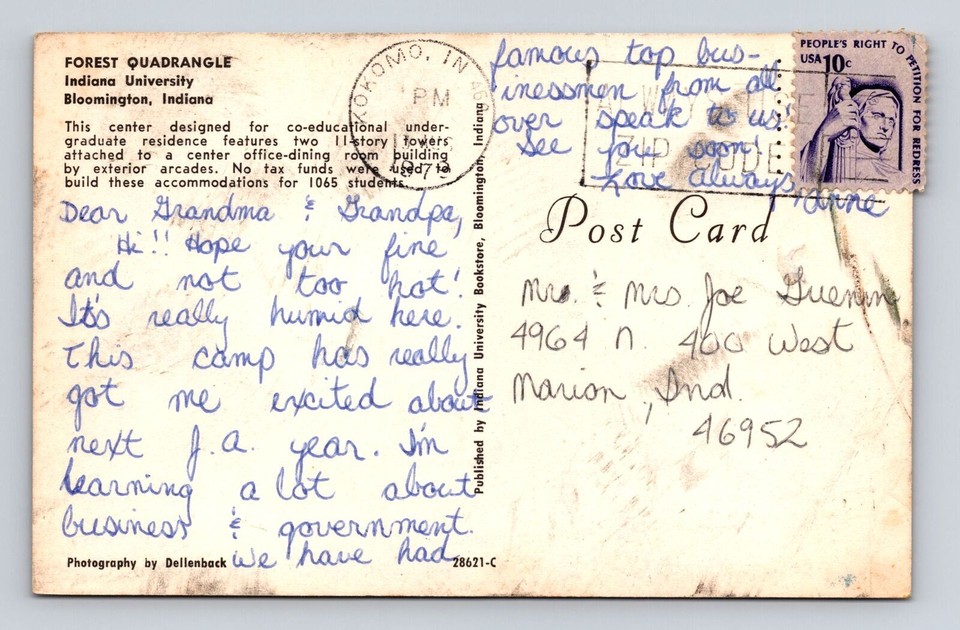 FOREST QUADRANGLE
Indiana University
Bloomington, Indiana
This center designed for co-educational under-
graduate residence features two 11-story towers
attached to a center office-dining room building
by exterior arcades. No tax funds were used to
build these accommodations for 1065 students.
Dear Grandma & Grandpa,
Hi!! Hope your fine
and not too hot!
It's really humid here.
This camp has really
got me excited about
next J.A. year. I'm
learning a lot about
business & government.
We have had
famous top bus-
inessmen from all
over speak to us!
See you soon!
Love always,
Anne
Photography by Dellenback
28621-C
Published by Indiana University Bookstore, Bloomington, Indiana
KOKOMO, IN
PM
ZIP CODE
PEOPLE'S RIGHT TO PETITION FOR REDRESS
USA 10c
Post Card
Mr. & Mrs. Joe Guenin
4964 N. 400 West
Marion, Ind.
46952